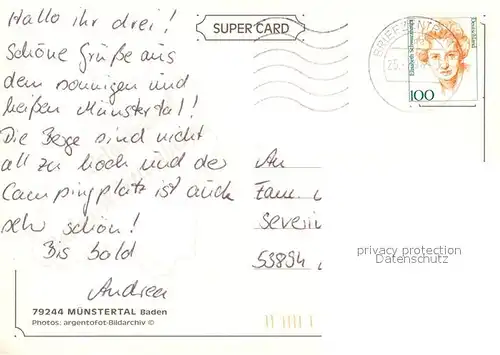 Hallo ihr drei!
Schöne Grüße aus
dem sonnigen und
heißen Münstertal!
Die Berge sind nicht
all zu hoch und der
Campingplatz ist auch
sehr schön!
Bis bald
Andrea
79244 MÜNSTERTAL Baden
Photos: argentofot-Bildarchiv ©
SUPER CARD
BRIEFZENTR
25.
Elisabeth Schwarzhaupt
Deutschland
100
An
Fam.
Severin
53894
privacy protection
Datenschutz